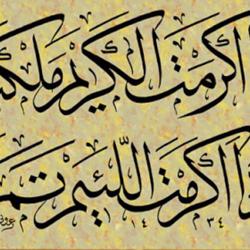 اكرمت الكريم ملكته
اكرمت اللئيم
١٤٣٤